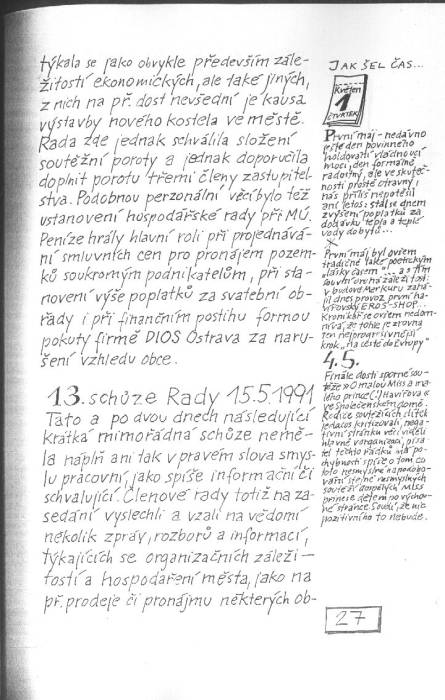 týkala se jako obvykle především zále-
žitostí ekonomických, ale také jiných,
z nich na př. dost nevšední je kausa
výstavby nového kostela ve městě.
Rada zde jednak schválila složení
soutěžní poroty a jednak doporučila
doplnit porotu třemi členy zastupitel-
stva. Podobnou perzonální věcí bylo též
ustanovení hospodářské rady při MÚ.
Peníze hrály hlavní roli při projednává-
ní smluvních cen pro pronájem pozem-
ků soukromým podnikatelům, při sta-
novení výše poplatků za svatební ob-
řady i při finančním postihu formou
pokuty firmě DIOS Ostrava za naru-
šení vzhledu obce.
13. schůze Rady 15.5.1991
Tato a po dvou dnech následující
krátká mimořádná schůze nemě-
la náplň ani tak v pravém slova smys-
lu pracovní, jako spíše informační či
schvalující. Členové rady totiž na za-
sedání vyslechli a vzali na vědomí
několik zpráv, rozborů a informací,
týkajících se organizačních záleži-
tostí a hospodaření města, jako na
př. prodeje či pronájmu některých ob-
JAK ŠEL ČAS...
Květen
1
ČTVRTEK
První máj - nedávno
ještě den povinného
holdování vládnoucí
moci, den formálně
radostný, ale ve skuteč-
nosti prostě otravný,
nás příliš nepotěšil
ani letos: stal se dnem
zvýšení poplatků za
dodávku tepla a teplé
vody do bytů...
První máj byl ovšem
tradičně také poetickým
"lásky časem"... a s tím
souvisí
v budově Merkuru zahá-
jil dnes provoz první ha-
vířovský EROS-SHOP.
Kronikář se ovšem nedom-
nívá, že tohle je zrovna
ten nejprogresivnější
krok "na cestě do Evropy"
4.5.
Finále dosti sporné sou-
těže "O malou Miss a ma-
lého prince(!) Havířova"
ve Společenském domě.
Rodiče soutěžících dítek
jedaes kritizovali, nega-
tivní stránku věci viděli
hlavně v organizaci, pisa-
tel těchto řádků má po-
chybnosti spíše o tom, co
toto nesmyslné napodobo-
vání stejně nesmyslných
soutěží dospělých Miss
přinese dětem po výchov-
né stránce. Soudí, že nic
pozitivního to nebude.
27